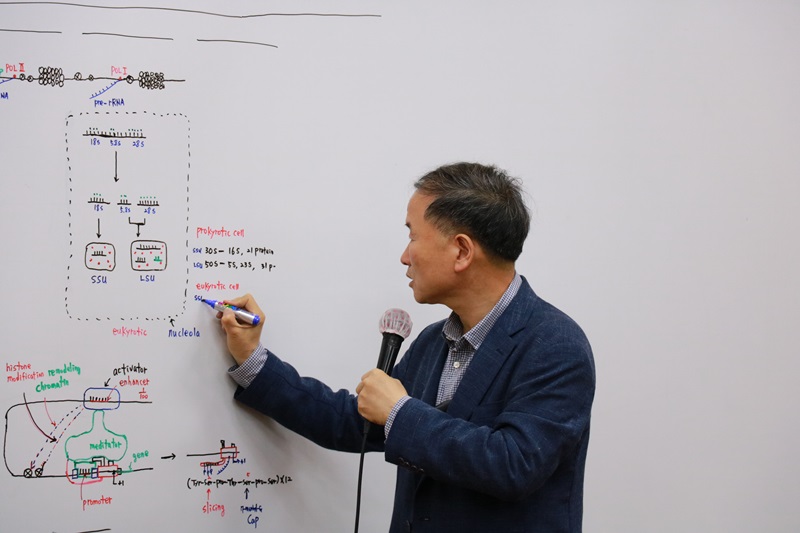 POL III
POL I
NA
pre-rRNA
18S 5.8S 28S
18S 5.8S 28S
SSU LSU
eukyrotic
nucleola
prokyrotic cell
SSU 30S - 16S, 21 protein
LSU 50S - 5S, 23S, 31 p-
eukyrotic cell
SSU
histone
modification
remodeling
chromatin
activator
enhancer
1/100
meditator
gene
+1
promoter
+1
(Tyr-Ser-pro-Thr-Ser-pro-Ser)×12
slicing
Cap